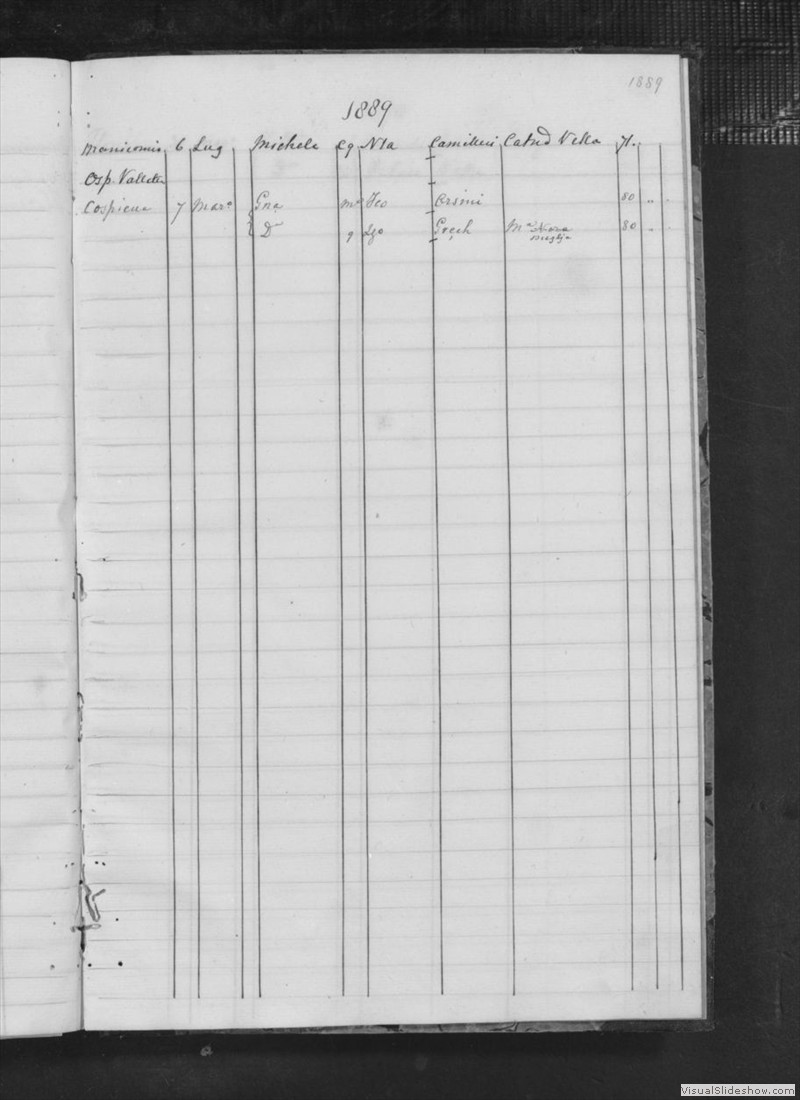 1889
1889
Manicomio 6 Lug Michele Cq Nta Camilleri Catnd Vella 71.
Osp. Valletta
Cospicua 7 Marª Gna mª Feo 80 "
Dª q Lzo Grech Mª 80 "
VisualSlideshow.com